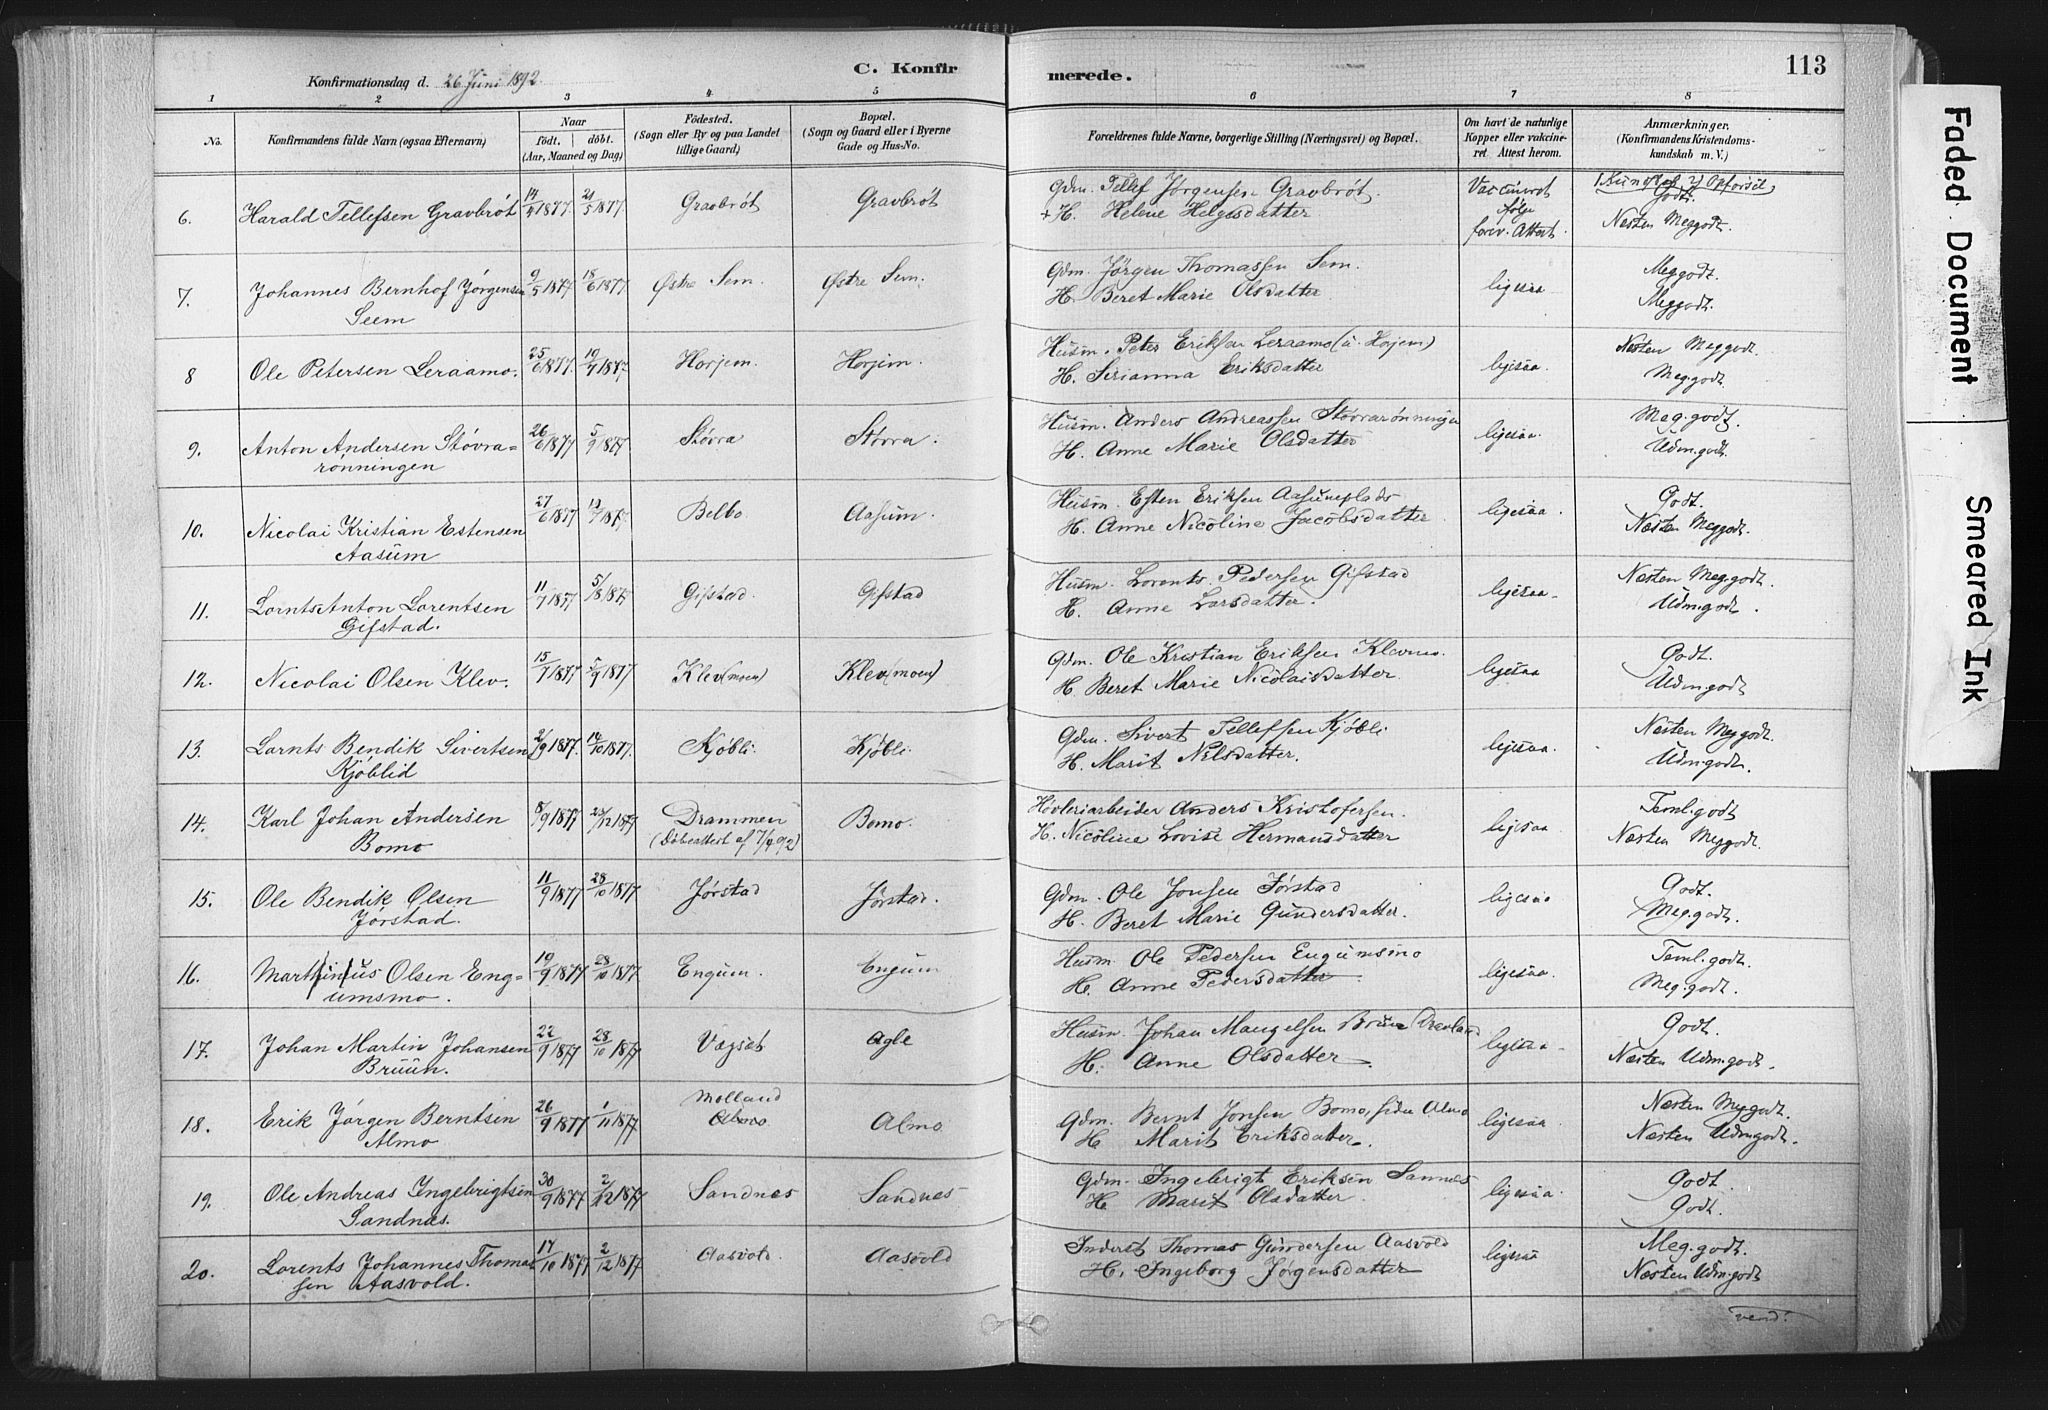 Konfirmationsdag d. 26 Juni 1892
C. Konfirmerede.
113
1 2 3 4 5 6 7 8
No.
Konfirmandens fulde Navn (ogsaa Efternavn)
Naar
født. døbt.
(Aar, Maaned og Dag)
Fødested.
(Sogn eller By og paa Landet
tillige Gaard)
Bopæl.
(Sogn og Gaard eller i Byerne
Gade og Hus-No.
Forældrenes fulde Navne, borgerlige Stilling (Næringsvei) og Bopæl.
Om havt de naturlige
Kopper eller vakcine-
ret Attest herom.
Anmærkninger.
(Konfirmandens Kristendoms-
kundskab m. V.)
6. Harald Tellefsen Gravbrøt 14/4 1877 21/5 1877. Gravbrøt Gravbrøt
Gdm. Tellef Jørgensen Gravbrøt.
+ H. Helene Helgesdatter
Vaccineret
ifølge
forev. Attest.
1 Kundskab 2) Opførsel
Godt.
Næsten Meg.godt.
7. Johannes Bernhof Jørgensen
Seem
9/5 1877 18/6 1877 Østre Sem. Østre Sem.
Gdm. Jørgen Thomassen Sem.
H. Beret Marie Olsdatter
ligesaa
Meg.godt.
Meg.godt.
8 Ole Petersen Leraamo. 25/6 1877. 19/7 1877 Horjem. Horjem.
Husm. Peter Eriksen Leraamo (u. Horjem)
H. Serianna Eriksdatter
ligesaa.
Næsten Meg.godt.
Meg.godt.
9. Anton Andersen Støvra-
rønningen
26/6 1877 5/9 1877 Støvra Støvra.
Husm. Anders Andreassen Støvrarønningen
H. Anne Marie Olsdatter
ligesaa.
Meg.godt.
Udm.godt.
10. Nicolai Kristian Estensen
Aasum
27/6 1877 19/7 1877. Belbo Aasum.
Husm. Esten Eriksen Aasumplads
H. Anne Nicoline Jacobsdatter
ligesaa.
Godt.
Næsten Meg.godt.
11. Lornts Anton Lorentsen
Gifstad.
11/7 1877 5/8 1877 Gifstad. Gifstad
Husm. Lorents Pedersen Gifstad
H. Anne Larsdatter.
ligesaa.
Næsten Meg.godt.
Udm.godt.
12. Nicolai Olsen Klev. 15/7 1877 5/9 1877 Klev(moen) Klev(moen)
Gdm. Ole Kristian Eriksen Klevmo.
H. Beret Marie Nicolaisdatter
ligesaa
Godt.
Udm.godt
13. Lornts Bendik Sivertsen
Kjøblid
2/9 1877. 14/10 1877. Kjøbli. Kjøbli.
Gdm. Sivert Tellefsen Kjøbli
H. Marit Nilsdatter.
ligesaa.
Næsten Meg.godt.
Udm.godt.
14. Karl Johan Andersen
Bomo
8/9 1877 Drammen
(Døbeattest af 7/4 92)
Bomo.
Høvleriarbeider Anders Kristofersen.
H. Nicoline Lovise Hermansdatter
ligesaa
Teml.godt
Næsten Meg.godt.
15. Ole Bendik Olsen
Jørstad.
11/9 1877 28/10 1877 Jørstad Jørstad.
Gdm. Ole Jonsen Jørstad
H. Beret Marie Gundersdatter.
ligesaa
Godt.
Meg.godt.
16. Martinus Olsen Eng-
umsmo.
19/9 1877 28/10 1877. Engum. Engum
Husm. Ole Pedersen Engumsmo
H. Anne Pedersdatter.
ligesaa.
Teml.godt.
Meg.godt.
17. Johan Martin Johansen
Bruun.
22/9 1877 28/10 1877 Vegset Agle
Husm. Johan Mangelsen Bruun
H. Anne Olsdatter.
ligesaa
Godt.
Næsten Udm.godt.
18. Erik Jørgen Berntsen
Almo
26/9 1877 1/11 1877 Molland
Almo
Almo
Gdm. Bernt Jonsen Bomo, siden Almo
H. Marit Eriksdatter.
ligesaa
Næsten Meg.godt.
Næsten Udm.godt.
19. Ole Andreas Ingebrigtsen
Sandnæs.
30/9 1877 2/12 1877 Sandnæs Sandnæs
Gdm. Ingebrigt Eriksen Sannæs
H. Marit Olsdatter.
ligesaa.
Godt.
Godt.
20. Lorents Johannes Thomas-
sen Aasvold.
17/10 1877 2/12 1877 Aasvold. Aasvold
Inderst Thomas Gundersen Aasvold
H. Ingeborg Jørgensdatter
ligesaa
Meg.godt.
Næsten Udm.godt
vend!
Faded Document
Smeared Ink